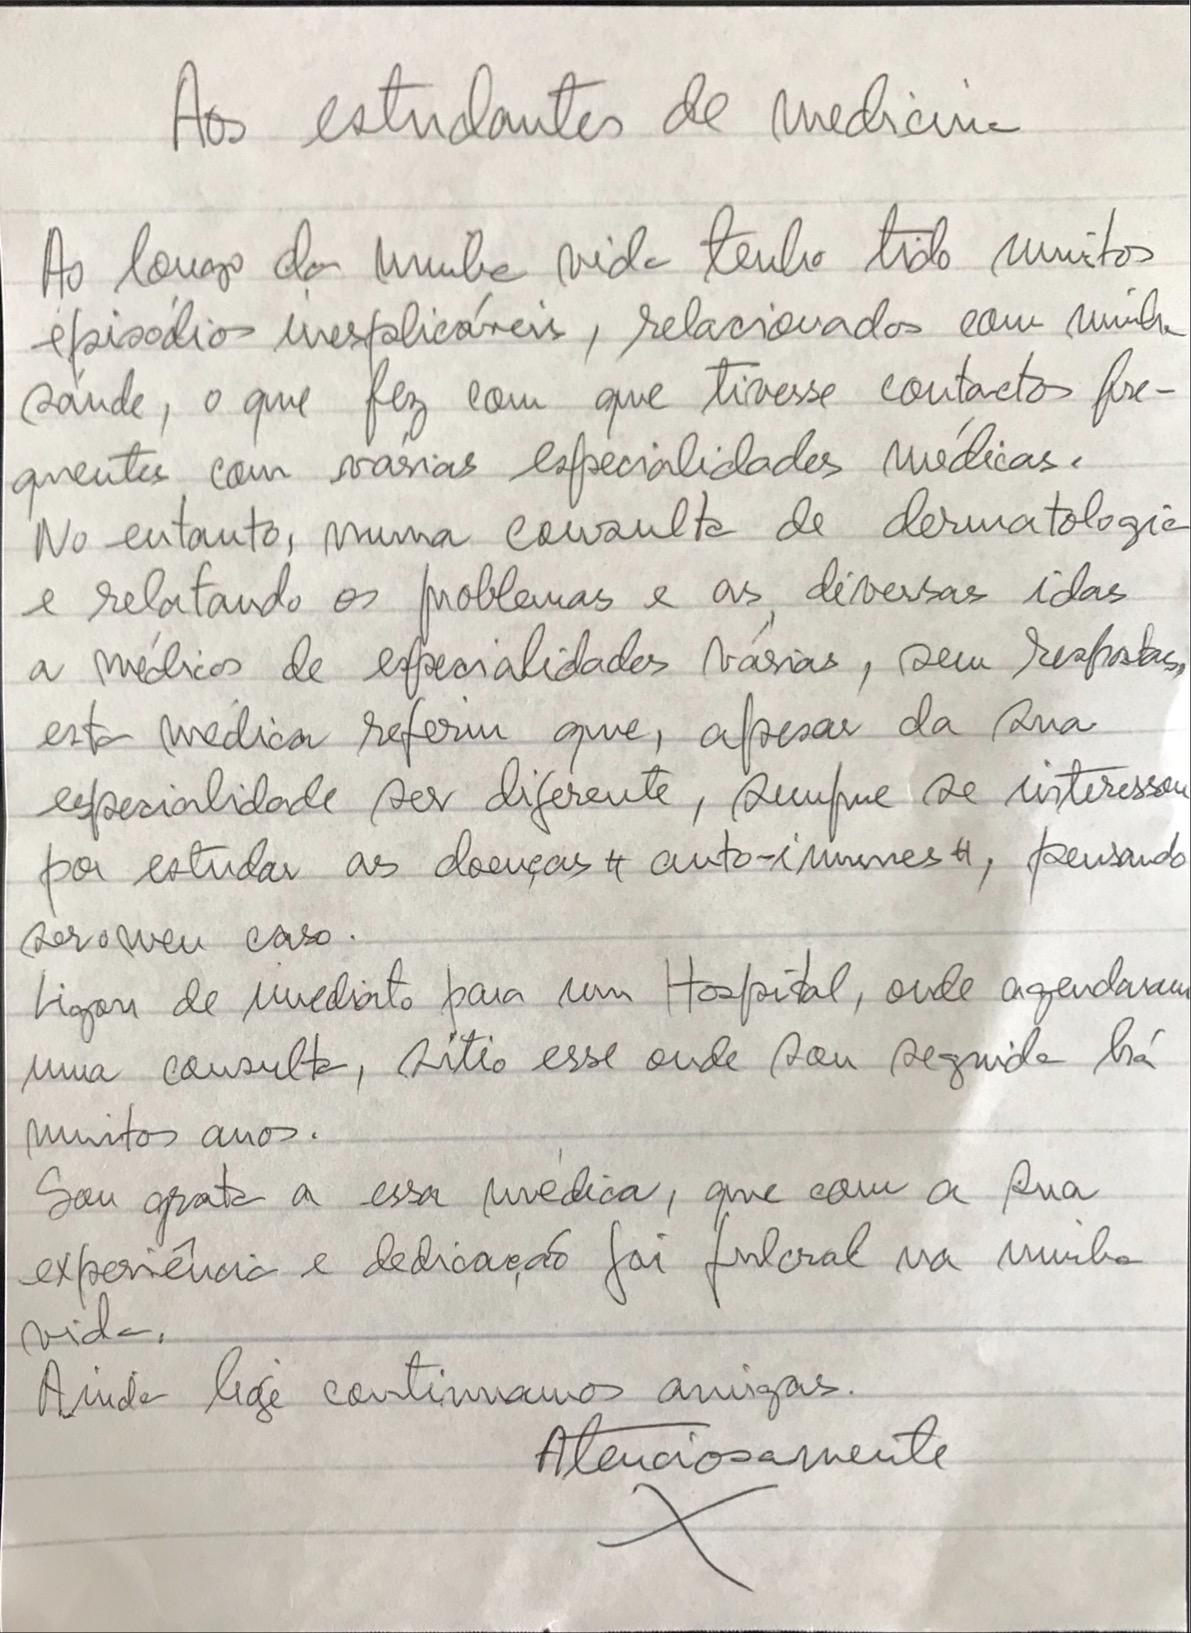 Aos estudantes de medicina
Ao longo da minha vida tenho tido muitos
episódios inexplicáveis, relacionados com minha
saúde, o que fez com que tivesse contactos fre-
quentes com várias especialidades médicas.
No entanto, numa consulta de dermatologia
e relatando os problemas e as diversas idas
a médicos de especialidades várias, sem respostas,
esta médica referiu que, apesar da sua
especialidade ser diferente, sempre se interessou
por estudar as doenças "auto-imunes", pensando
ser o meu caso.
Ligou de imediato para um Hospital, onde agendaram
uma consulta, sítio esse onde sou seguida há
muitos anos.
Sou grata a essa médica, que com a sua
experiência e dedicação foi fulcral na minha
vida.
Ainda hoje continuamos amigas.
Atenciosamente
X